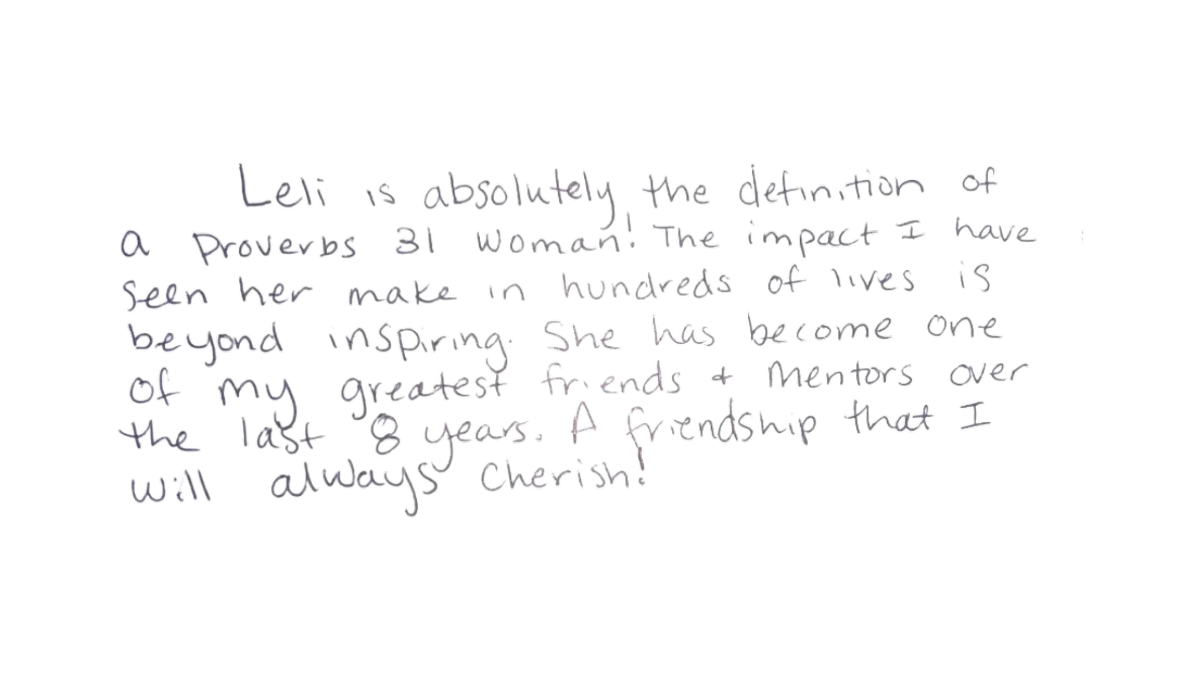 Leli is absolutely the definition of
a Proverbs 31 woman! The impact I have
seen her make in hundreds of lives is
beyond inspiring. She has become one
of my greatest friends + mentors over
the last 8 years. A friendship that I
will always cherish!